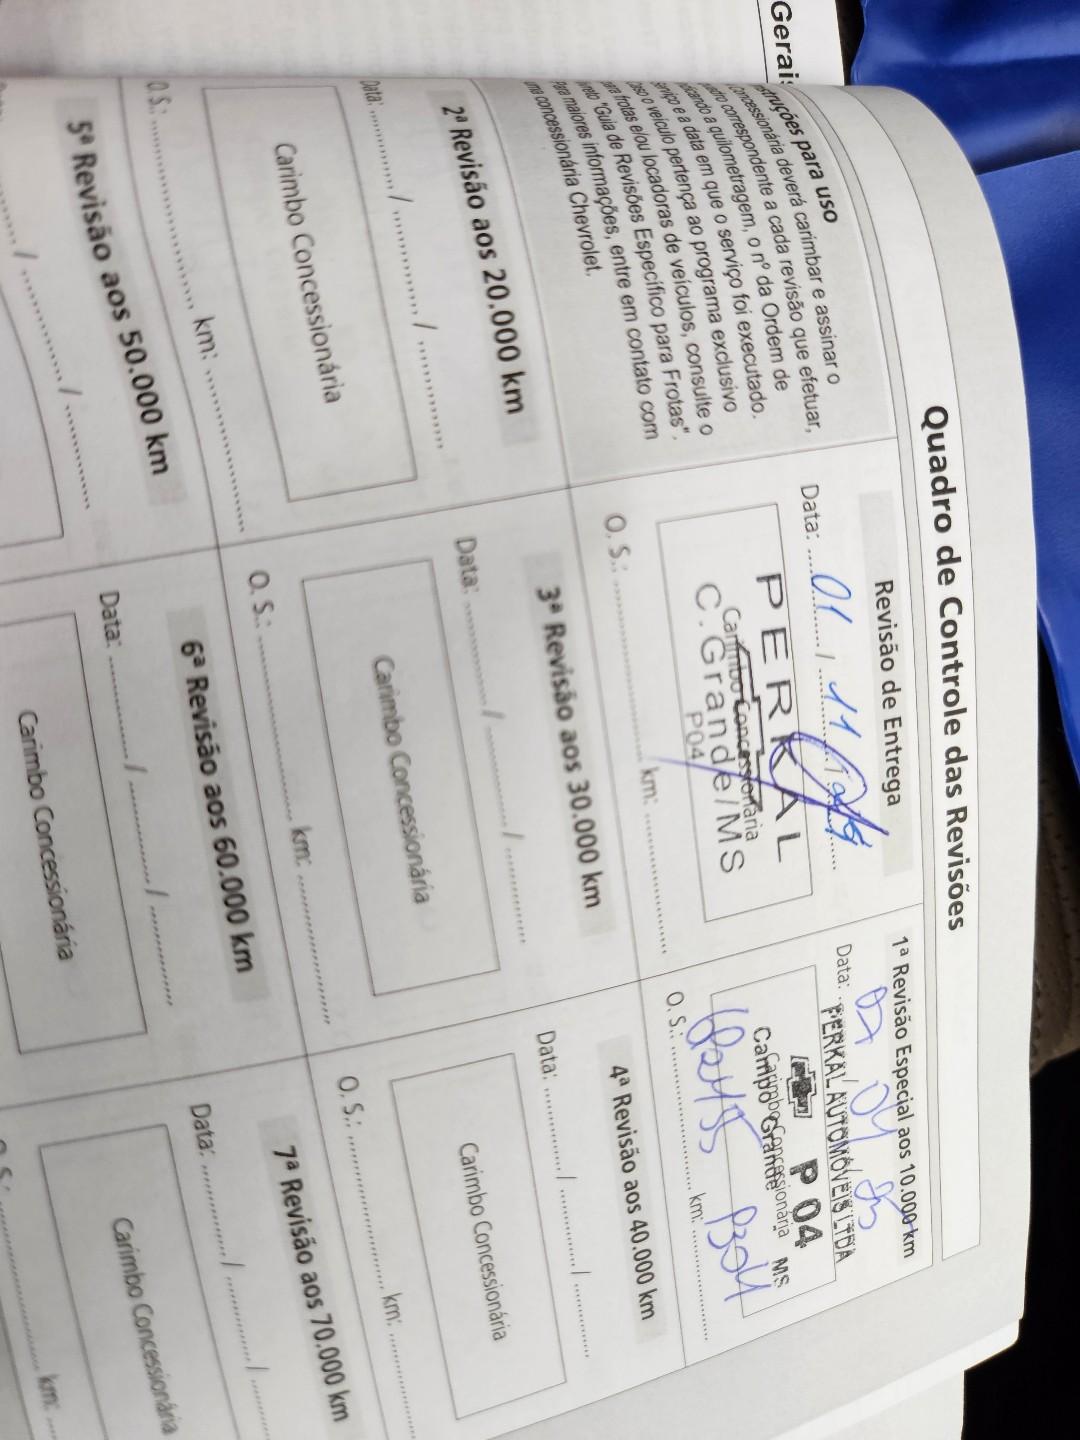 Gerais
Quadro de Controle das Revisões
concessionária deverá carimbar e assinar o
correspondente a cada revisão que efetuar,
a quilometragem, o nº da Ordem de
e a data em que o serviço foi executado.
o veículo pertença ao programa exclusivo
frotas e/ou locadoras de veículos, consulte o
"Guia de Revisões Específico para Frotas".
Para maiores informações, entre em contato com
uma concessionária Chevrolet.
Revisão de Entrega
Data: 01 / 11 /
PERKAL
Carimbo Concessionária
C. Grande/MS
P04
O. S.: km:
1ª Revisão Especial aos 10.000 km
Data:
PERKAL AUTOMÓVEIS LTDA
P 04
Carimbo Concessionária
Campo Grande MS
O. S.: km:
2ª Revisão aos 20.000 km
Data: / /
Carimbo Concessionária
O. S.: km:
3ª Revisão aos 30.000 km
Data: / /
Carimbo Concessionária
O. S.: km:
4ª Revisão aos 40.000 km
Data: / /
Carimbo Concessionária
O. S.: km:
5ª Revisão aos 50.000 km
/ /
6ª Revisão aos 60.000 km
Data: / /
Carimbo Concessionária
7ª Revisão aos 70.000 km
Data: / /
Carimbo Concessionária
km: